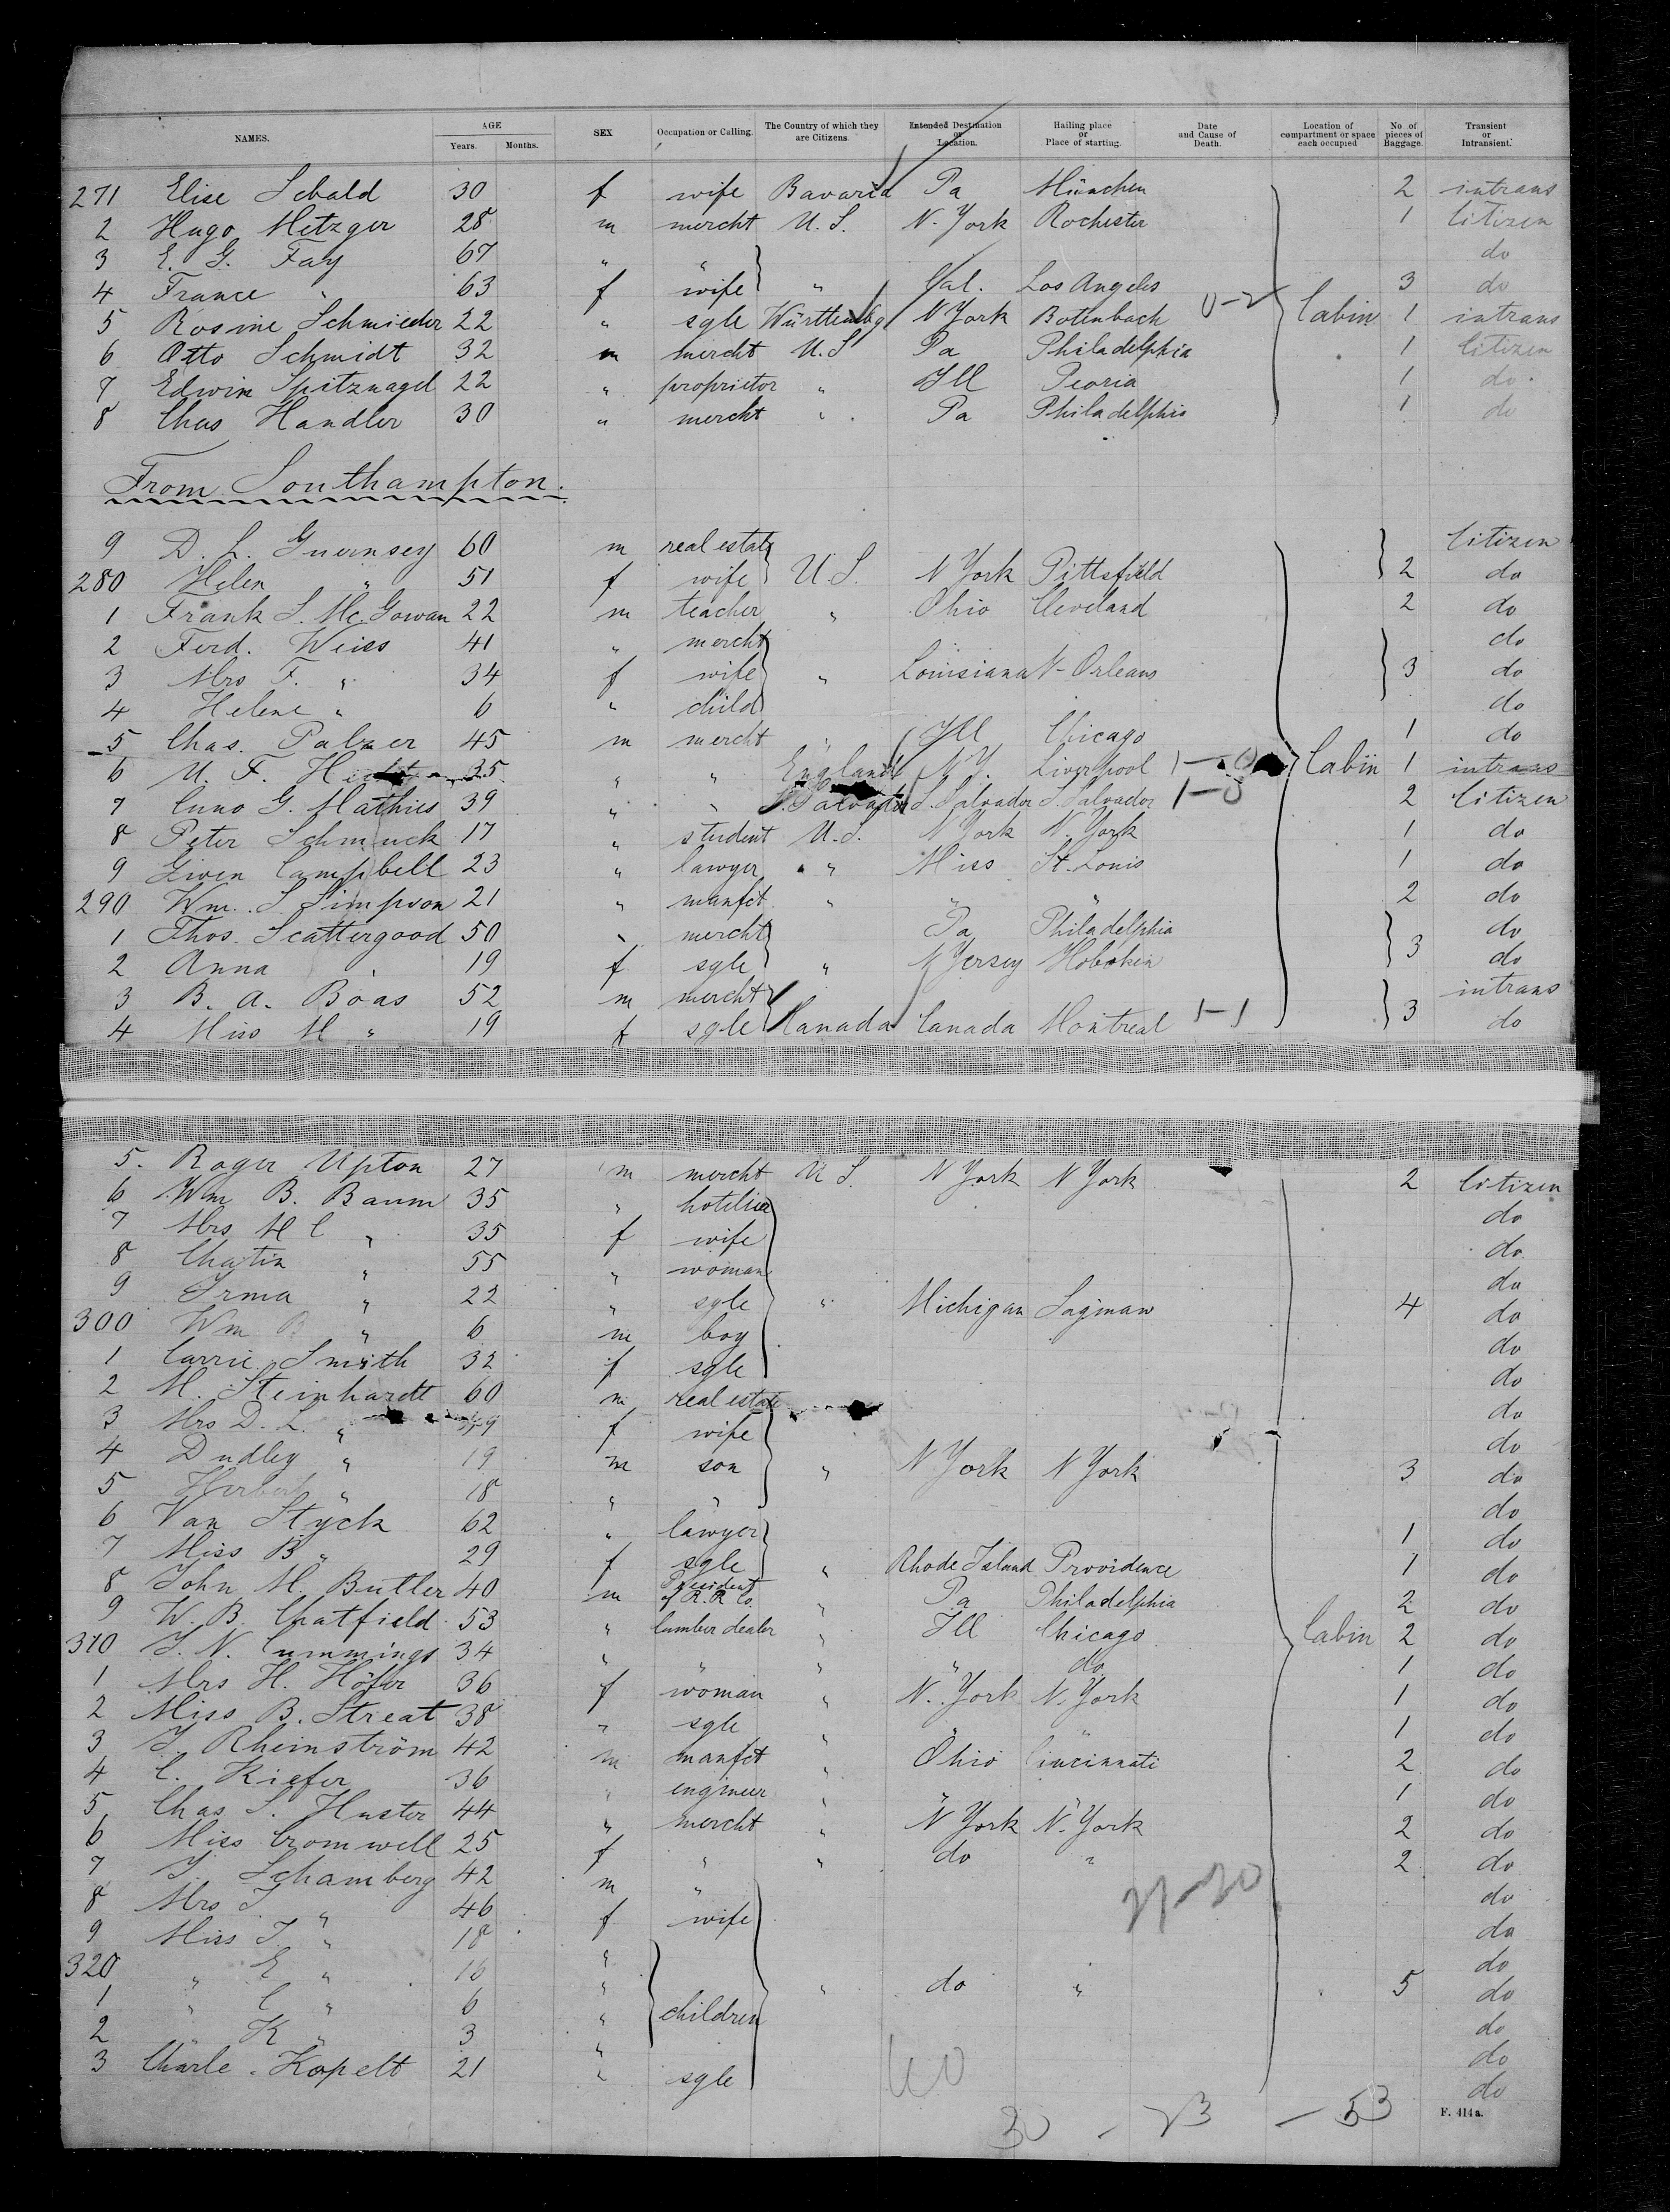 NAMES. AGE Years. Months. SEX Occupation or Calling. The Country of which they are Citizens. Intended Destination or Location. Hailing place or Place of starting. Date and Cause of Death. Location of compartment or space each occupied No. of pieces of Baggage. Transient or Intransient.
271 Elise Sebald 30 f wife Bavaria Pa München 2 intrans
2 Hugo Metzger 28 m mercht U.S. N. York Rochester 1 Citizen
3 E. G. Fay 67 " " do
4 France " 63 f wife " Cal. Los Angeles 3 do
5 Rosine Schmieder 22 " sgle Württembg N York Botenbach 0-2 Cabin 1 intrans
6 Otto Schmidt 32 m mercht U.S Pa Philadelphia 1 Citizen
7 Edwin Spitznagel 22 " proprietor " Ill Peoria 1 do.
8 Chas Handler 30 " mercht " Pa Philadelphia 1 do
From Southampton.
9 D. L. Guernsey 60 m real estate Citizen
280 Helen " 51 f wife U.S. N York Pittsfield 2 do
1 Frank S. Mc. Gowan 22 m teacher " Ohio Cleveland 2 do
2 Ferd. Weiss 41 " mercht do
3 Mrs F. " 34 f wife " Louisiana N-Orleans 3 do
4 Helene " 6 " child do
5 Chas. Palzer 45 m mercht " Ill Chicago 1 do
6 U. F. 35 " " England N.Y. Liverpool 1-0 Cabin 1 intrans
7 Cuno G. Mathies 39 " " S. Salvador S. Salvador S. Salvador 1-0 2 Citizen
8 Peter Schmuck 17 " student U.S. N York N. York 1 do
9 Given Campbell 23 " lawyer " Miss St. Louis 1 do
290 Wm. S. Simpson 21 " manfct. " " " 2 do
1 Thos. Scattergood 50 " mercht Pa Philadelphia do
2 Anna " 19 f sgle " N Jersey Hoboken 3 do
3 B. A. Boas 52 m mercht intrans
4 Miss M " 19 f sgle Canada Canada Montreal 1-1 3 do
5. Roger Upton 27 m mercht U S. N York N York 2 Citizen
6 Wm B. Baum 35 " hotelier do
7 Mrs M C " 35 f wife do
8 " 55 " woman do
9 Irma " 22 " sgle " Michigan Saginaw 4 do
300 Wm B " 6 m boy do
1 Carrie Smith 32 f sgle do
2 M. Steinhardt 60 m real estate do
3 Mrs D. L. " f wife do
4 Dudley " 19 m son " N York N York 3 do
5 Herbert " 18 " " do
6 Van Slyck 62 " lawyer 1 do
7 Miss B " 29 f sgle " Rhode Island Providence 1 do
8 John M. Butler 40 m President of R.R Co. " Pa Philadelphia 2 do
9 W. B. Chatfield 53 " lumber dealer " Ill Chicago Cabin 2 do
310 T. N. Cummings 34 " " " " do 1 do
1 Mrs H. Höfer 36 f woman " N. York N. York 1 do
2 Miss B. Streat 38 " sgle " " " 1 do
3 Rheinström 42 m manfct " Ohio Cincinnati 2 do
4 C. Kiefer 36 " engineer " " " 1 do
5 Chas S. Huster 44 " mercht " N York N. York 2 do
6 Miss Cromwell 25 f " " do " 2 do
7 Schamberg 42 m " do
8 Mrs " 46 f wife do
9 Miss " 18 " do
320 " E " 16 " " do " 5 do
1 " C " 6 " children do
2 " K " 3 " do
3 Charle. Kopelt 21 " sgle do
40
30 - 23 - 53
F. 414 a.